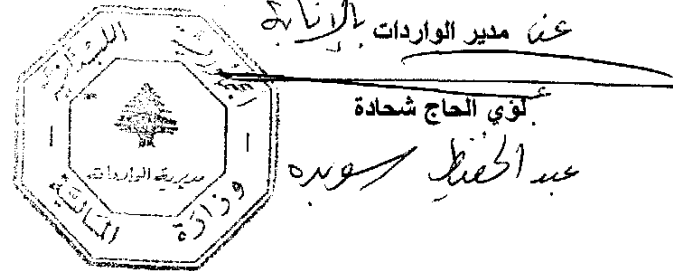 عن مدير الواردات بالإنابة
لؤي الحاج شحادة
عبد الحفيظ سويده
الجمهورية اللبنانية
مديرية الواردات
وزارة المالية